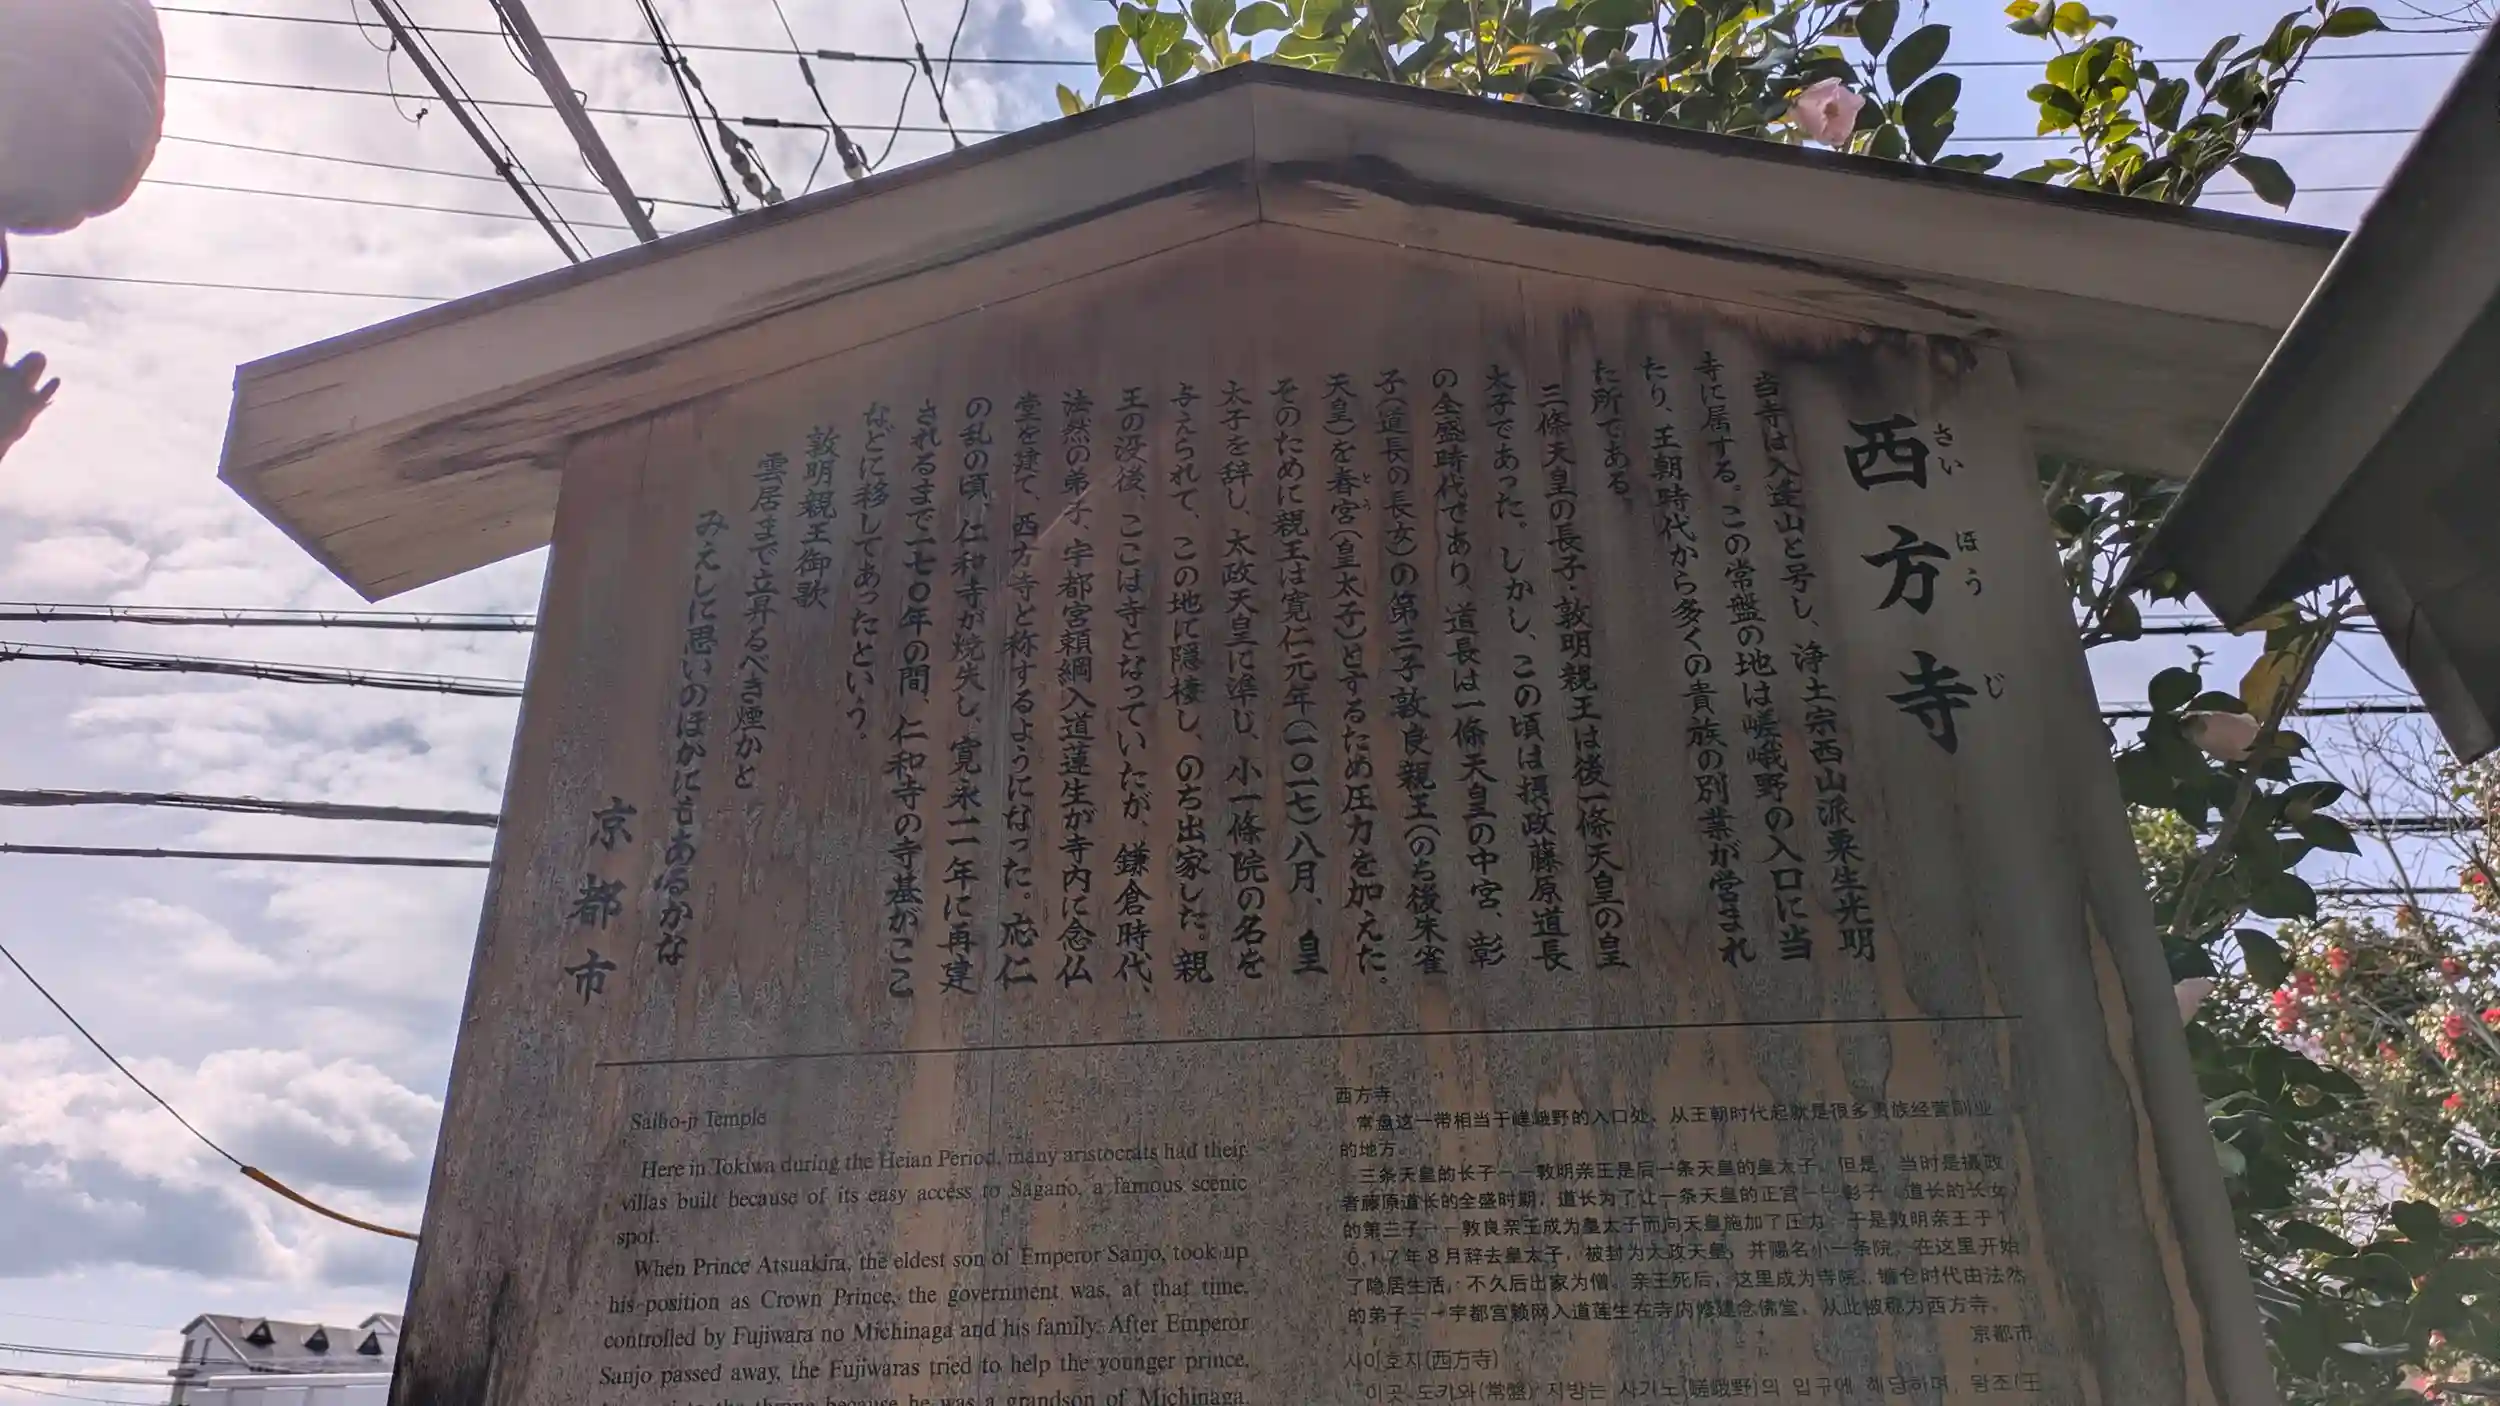 西方寺
さいほうじ
当寺は入逢山と号し、浄土宗西山派粟生光明
寺に居する。この常盤の地は嵯峨野の入口に当
たり、王朝時代から多くの貴族の別業が営まれ
た所である。
三條天皇の長子・敦明親王は後一條天皇の皇
太子であった。しかし、この頃は摂政藤原道長
の全盛時代であり、道長は一條天皇の中宮、彰
子(道長の長女)の第三子敦良親王(のち後朱雀
天皇)を春宮(皇太子)とするため圧力を加えた。
とうぐう
そのために親王は寛仁元年(一〇一七)八月、皇
太子を辞し、太政天皇に準じ、小一條院の名を
与えられて、この地に隠棲し、のち出家した。親
王の没後、ここは寺となっていたが、鎌倉時代、
法然の弟子、宇都宮頼綱入道蓮生が寺内に念仏
堂を建て、西方寺と称するようになった。応仁
の乱の頃、仁和寺が焼失し、寛永一一年に再建
されるまで一七〇年の間、仁和寺の寺基がここ
などに移してあったという。
敦明親王御歌
雲居まで立昇るべき煙かと
みえしに思いのほかにもあるかな
京都市
Saiho-ji Temple
Here in Tokiwa during the Heian Period, many aristocrats had their
villas built because of its easy access to Sagano, a famous scenic
spot.
When Prince Atsuakira, the eldest son of Emperor Sanjo, took up
his position as Crown Prince, the government was, at that time,
controlled by Fujiwara no Michinaga and his family. After Emperor
Sanjo passed away, the Fujiwaras tried to help the younger prince,
the throne because he was a grandson of Michinaga.
西方寺
常盘这一带相当于嵯峨野的入口处、从王朝时代起就是很多贵族经营副业
的地方。
三条天皇的长子——敦明亲王是后一条天皇的皇太子。但是，当时是摄政
者藤原道长的全盛时期，道长为了让一条天皇的正宫——彰子（道长的长女）
的第三子——敦良亲王成为皇太子而向天皇施加了压力。于是敦明亲王于1
017年8月辞去皇太子，被封为太政天皇，并赐名小一条院，在这里开始
了隐居生活，不久后出家为僧。亲王死后，这里成为寺院、镰仓时代由法然
的弟子——宇都宫赖网入道莲生在寺内修建念佛堂，从此被称为西方寺。
京都市
사이호지(西方寺)
이곳 도키와(常盤) 지방는 사가노(嵯峨野)의 입구에 해당하며, 왕조(王